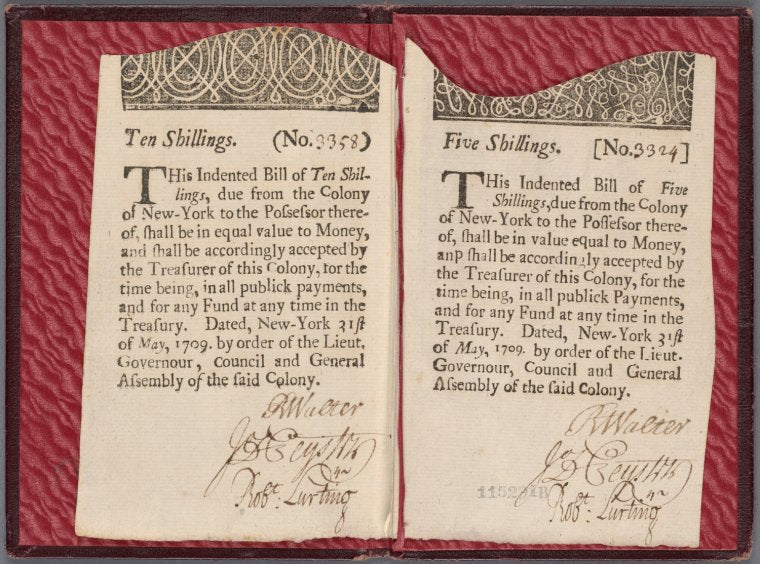 Ten Shillings. (No. 3358)
THis Indented Bill of Ten Shil-
lings, due from the Colony
of New-York to the Poſſeſor there-
of, ſhall be in equal value to Money,
and ſhall be accordingly accepted by
the Treaſurer of this Colony, for the
time being, in all publick payments,
and for any Fund at any time in the
Treaſury. Dated, New-York 31ſt
of May, 1709. by order of the Lieut.
Governour, Council and General
Aſſembly of the ſaid Colony.
RWalter
Robt. Lurting
Five Shillings. [No. 3324]
THis Indented Bill of Five
Shillings, due from the Colony
of New-York to the Poſſeſor there-
of, ſhall be in value equal to Money,
anp ſhall be accordingly accepted by
the Treaſurer of this Colony, for the
time being, in all publick Payments,
and for any Fund at any time in the
Treaſury. Dated, New-York 31ſt
of May, 1709. by order of the Lieut.
Governour, Council aud General
Aſſembly of the ſaid Colony.
RWalter
Robt. Lurting